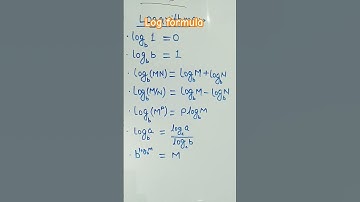 Log formula
· log_b 1 = 0
· log_b b = 1
· log_b(MN) = log_b M + log_b N
· log_b(M/N) = log_b M - log_b N
· log_b(M^p) = p log_b M
· log_b a = log_c a / log_c b
· b^(log_b M) = M